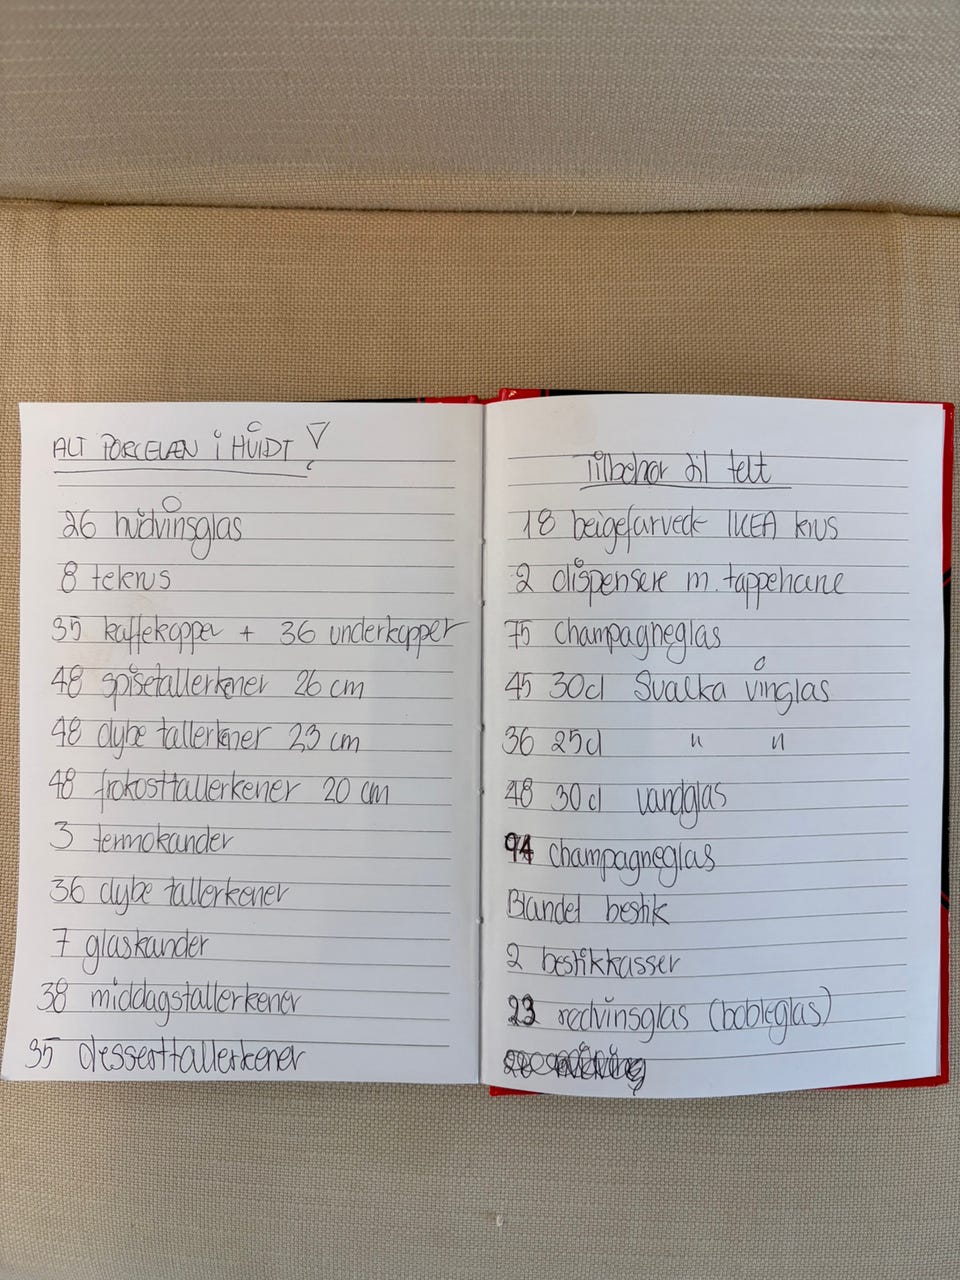 ALT PORCELÆN i HVIDT!
26 hvidvinsglas
8 tekrus
35 kaffekopper + 36 underkopper
48 spisetallerkener 26 cm
48 dybe tallerkener 23 cm
48 frokosttallerkener 20 cm
3 termokander
36 dybe tallerkener
7 glaskander
38 middagstallerkener
35 desserttallerkener
Tilbehør til telt
18 beigefarvede IKEA krus
2 dispensere m. tappehane
75 champagneglas
45 30cl Svalka vinglas
36 25cl " "
48 30cl vandglas
94 champagneglas
Blandet bestik
2 bestikkasser
23 rødvinsglas (bobleglas)